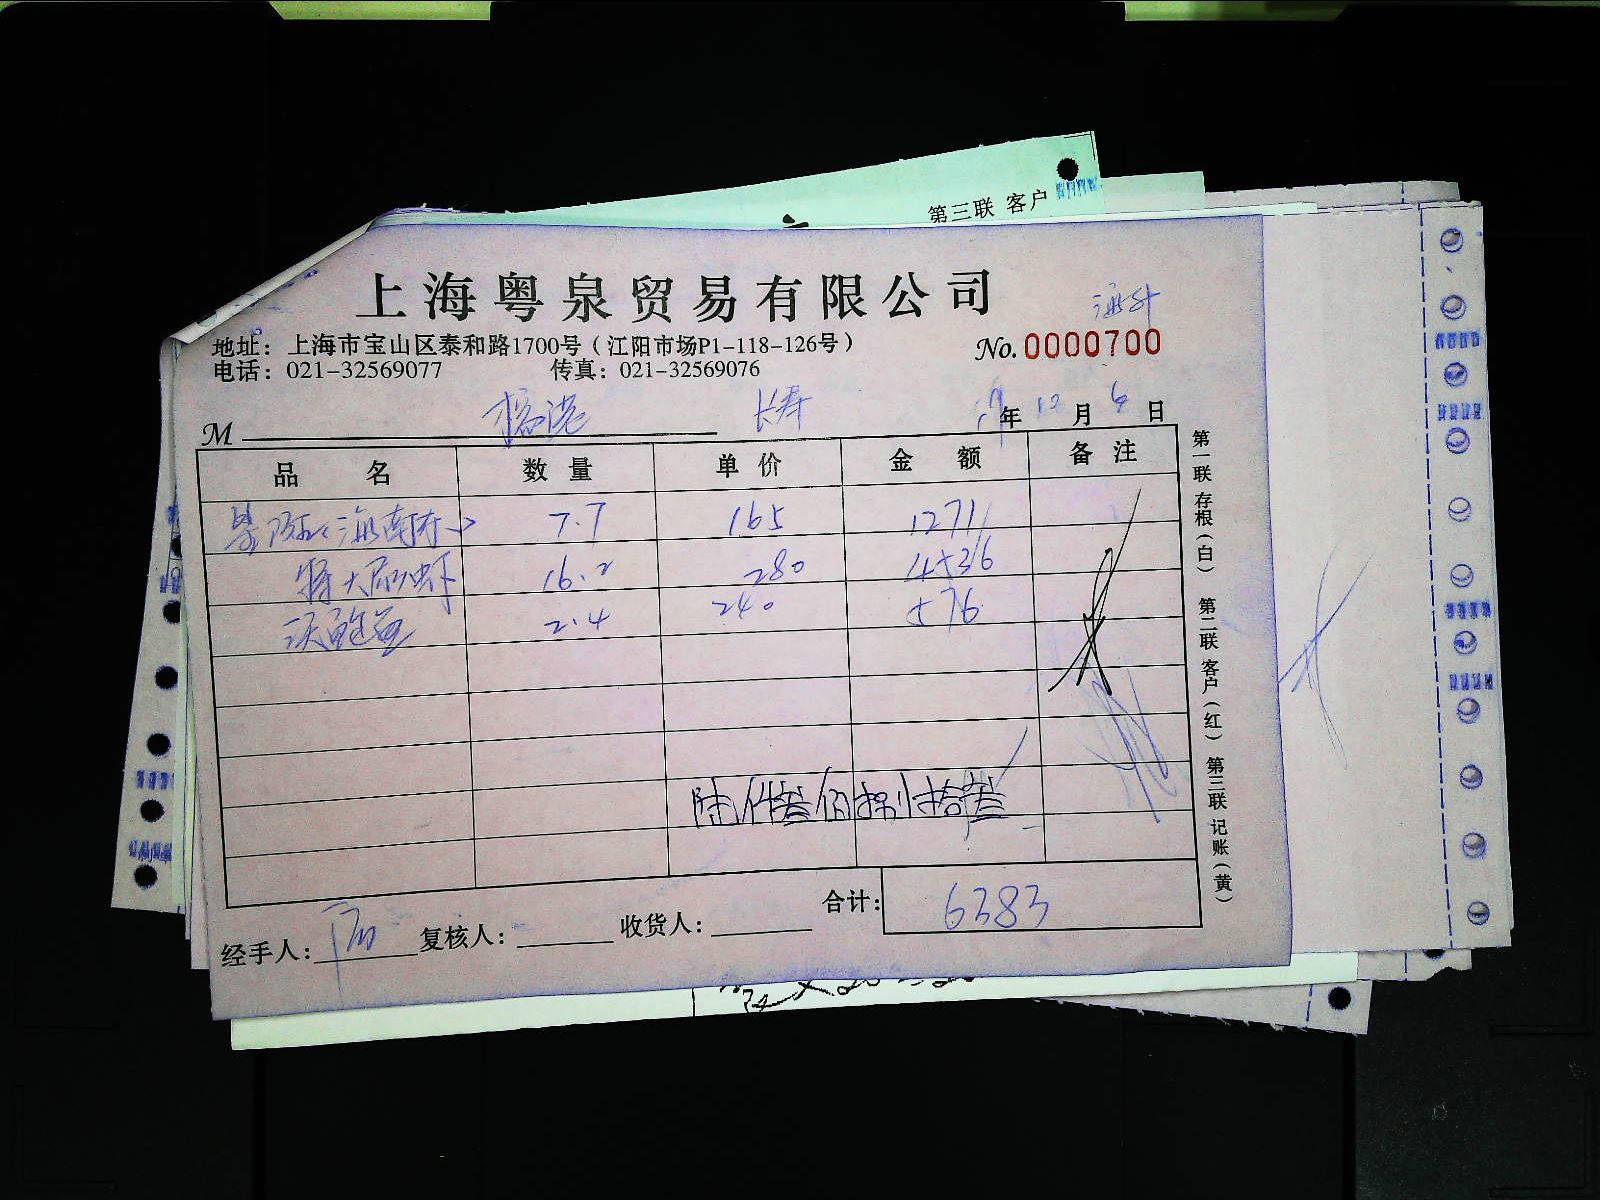 第三联 客户
上海粤泉贸易有限公司
海外
地址：上海市宝山区泰和路1700号（江阳市场P1-118-126号）
No. 0000700
电话：021-32569077 传真：021-32569076
M 长寿 年 12 月 6 日
品名 数量 单价 金额 备注
7.7 165 1271
特大 虾 16.2 280 4536
鲍鱼 2.4 240 576
陆仟叁佰捌拾叁
合计：6383
经手人： 复核人： 收货人：
第一联 存根（白） 第二联 客户（红） 第三联 记账（黄）